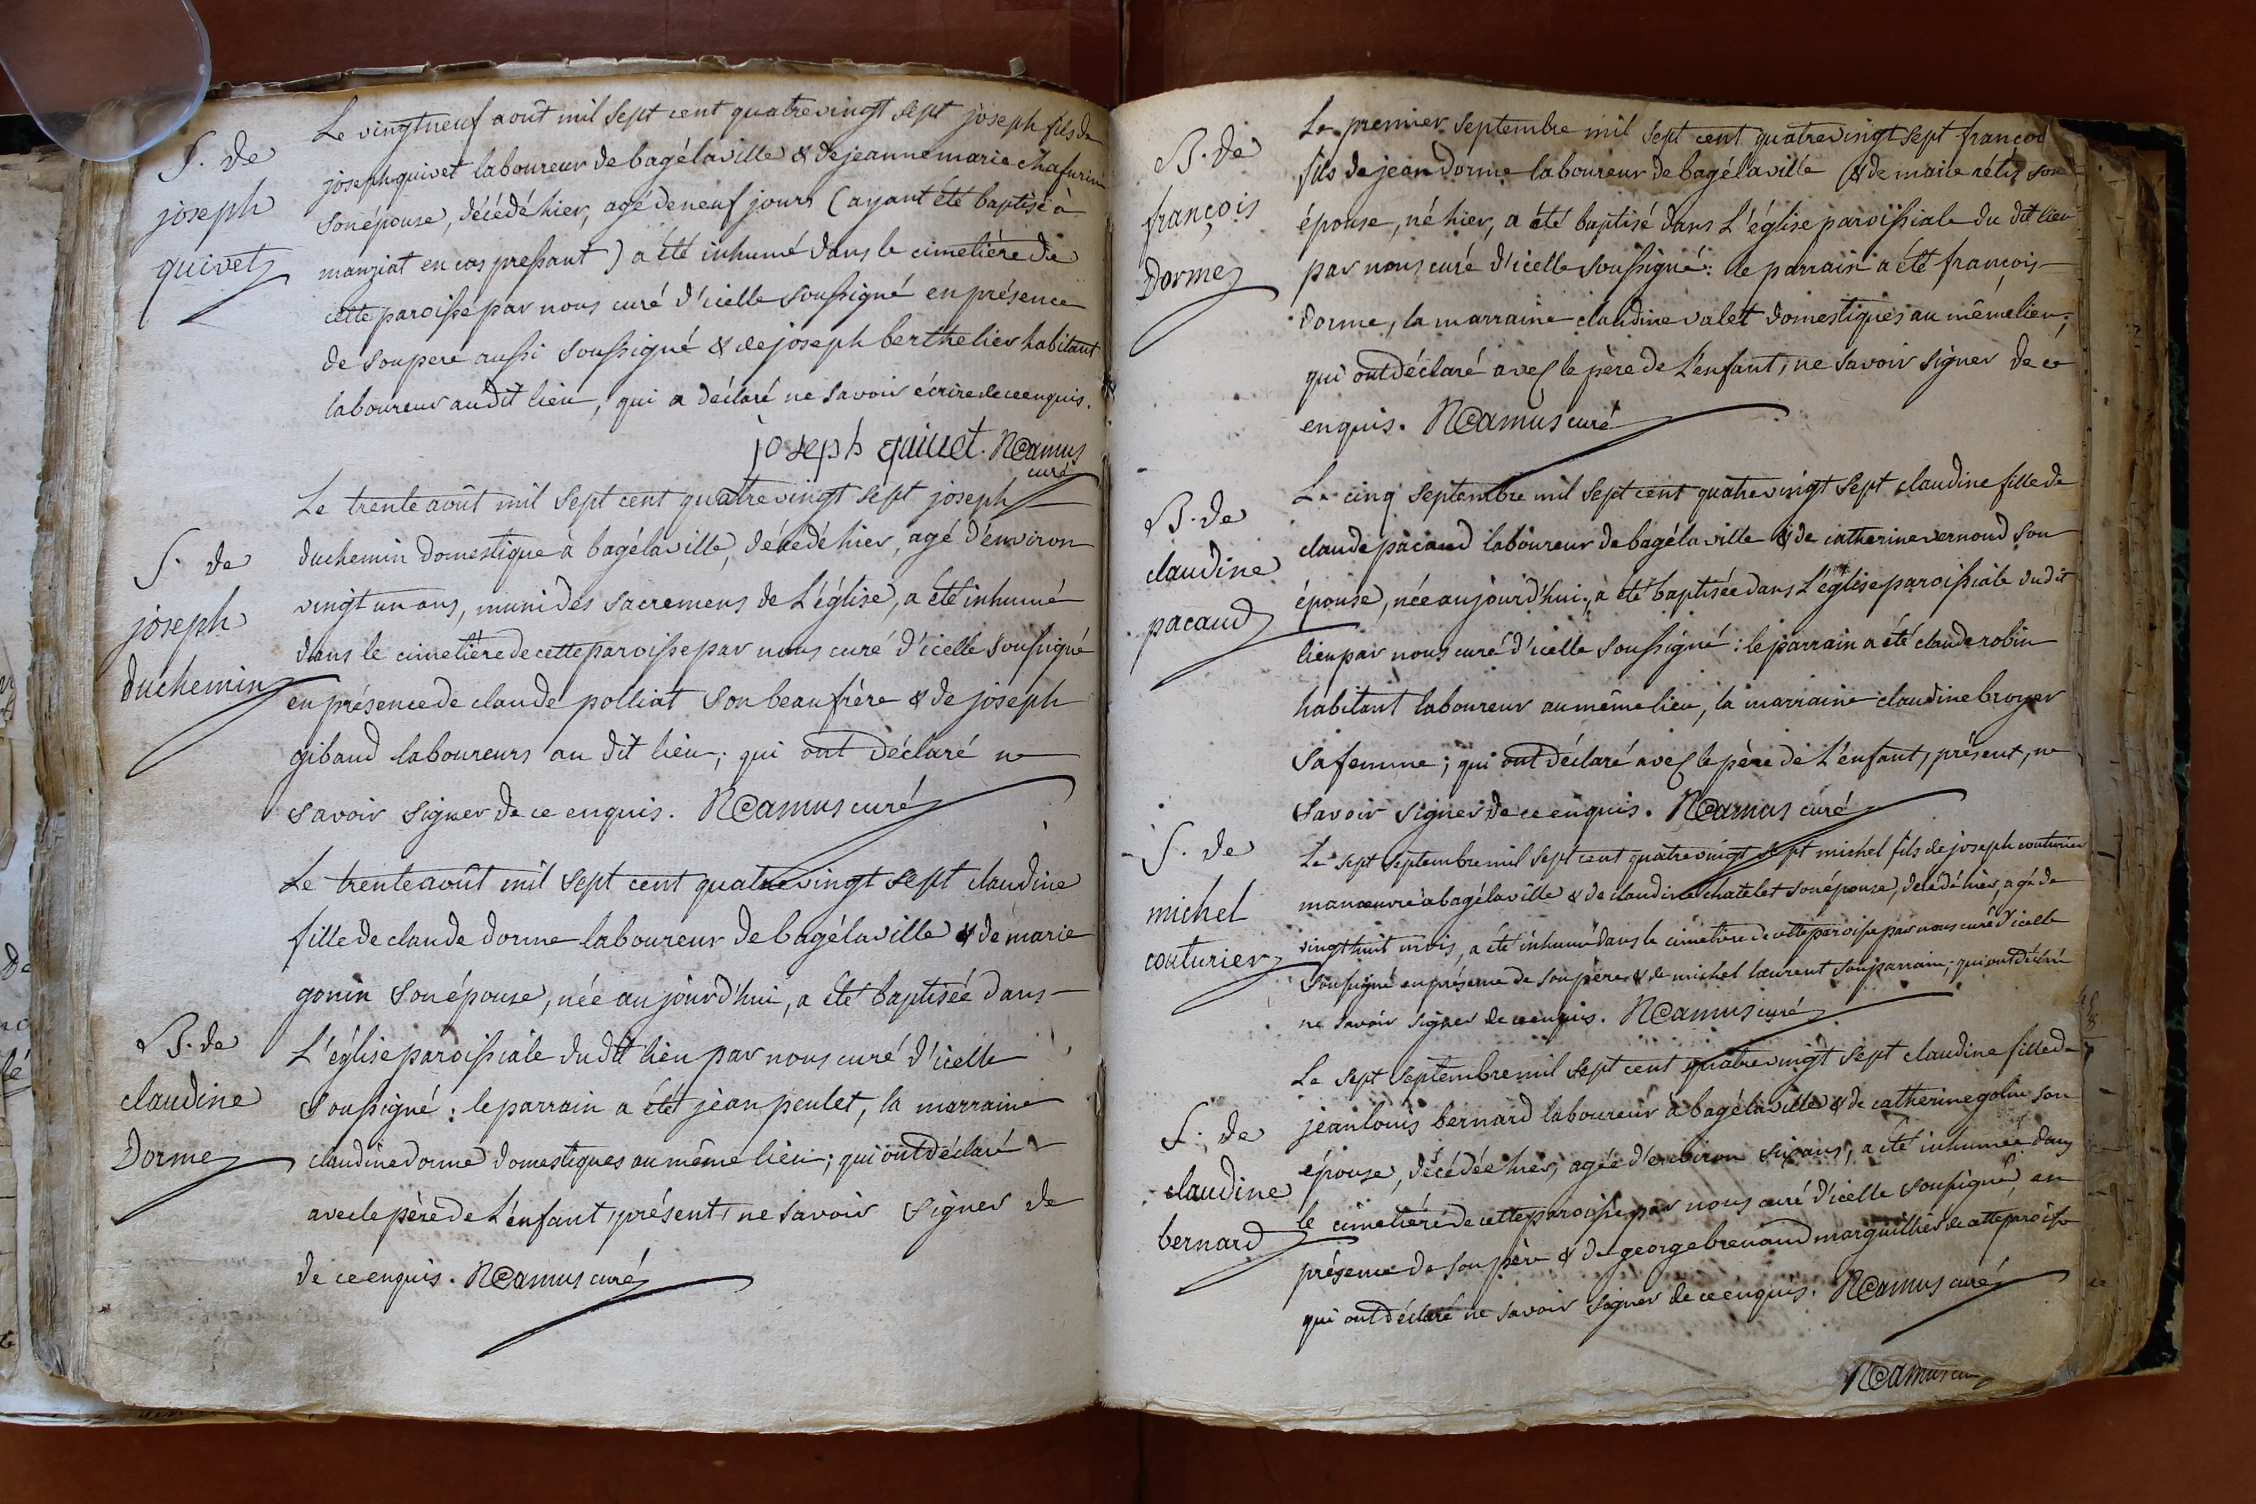 S. de
joseph
quivet
Le vingt neuf août mil sept cent quatre vingt sept joseph fils de
joseph quivet laboureur de bagélaville & de jeanne marie chafurin
son épouse, décédé hier, agé de neuf jours (ayant été baptisé à
manziat en cas pressant) a été inhumé dans le cimetière de
cette paroisse par nous curé d'icelle soussigné en présence
de son pere aussi soussigné & de joseph berthelier habitant
laboureur au dit lieu, qui a déclaré ne savoir écrire de ce enquis.
joseph quivet. N Camus
curé
S. de
joseph
duchemin
Le trente août mil sept cent quatre vingt sept joseph
duchemin domestique à bagélaville, décédé hier, agé d'environ
vingt un ans, muni des sacremens de L'église, a été inhumé
dans le cimetière de cette paroisse par nous curé d'icelle soussigné
en présence de claude polliat son beaufrère & de joseph
giband laboureurs au dit lieu; qui ont déclaré ne
savoir signer de ce enquis. N Camus curé
B. de
claudine
Dorme
Le trente août mil sept cent quatre vingt sept claudine
fille de claude dorme laboureur de bagélaville & de marie
gonin son épouse, née aujourd'hui, a été baptisée dans
L'église paroissiale du dit lieu par nous curé d'icelle
soussigné: le parrain a été jean peulet, la marraine
claudine dorme domestiques au même lieu; qui ont déclaré
avec le père de L'enfant, présent, ne savoir signer de
de ce enquis. N Camus curé
B. de
françois
Dorme
Le premier septembre mil sept cent quatre vingt sept françois
fils de jean dorme laboureur de bagélaville & de marie rétif son
épouse, né hier, a été baptisé dans L'église paroissiale du dit lieu
par nous curé d'icelle soussigné: le parrain a été françois
dorme, la marraine claudine valet domestiques au même lieu;
qui ont déclaré avec le père de L'enfant, ne savoir signer de ce
enquis. N Camus curé
B. de
claudine
pacaud
Le cinq septembre mil sept cent quatre vingt sept claudine fille de
claude pacaud laboureur de bagélaville & de catherine vernoud son
épouse, née aujourd'hui, a été baptisée dans L'église paroissiale du dit
lieu par nous curé d'icelle soussigné: le parrain a été claude robin
habitant laboureur au même lieu, la marraine claudine broyer
sa femme; qui ont déclaré avec le père de L'enfant, présent, ne
savoir signer de ce enquis. N Camus curé
S. de
michel
couturier
Le sept septembre mil sept cent quatre vingt sept michel fils de joseph couturier
manœuvre à bagélaville & de claudine chatelet son épouse, décédé hier, agé de
vingt huit mois, a été inhumé dans le cimetière de cette paroisse par nous curé d'icelle
soussigné en présence de son père & de michel laurent son parrain; qui ont déclaré
ne savoir signer de ce enquis. N Camus curé
S. de
claudine
bernard
Le sept septembre mil sept cent quatre vingt sept claudine fille de
jean louis bernard laboureur à bagélaville & de catherine golin son
épouse, décédée hier, agée d'environ six ans, a été inhumée dans
le cimetière de cette paroisse par nous curé d'icelle soussigné en
présence de son père & de george brevaud marguillier de cette paroisse
qui ont déclaré ne savoir signer de ce enquis. N Camus curé
N Camus curé